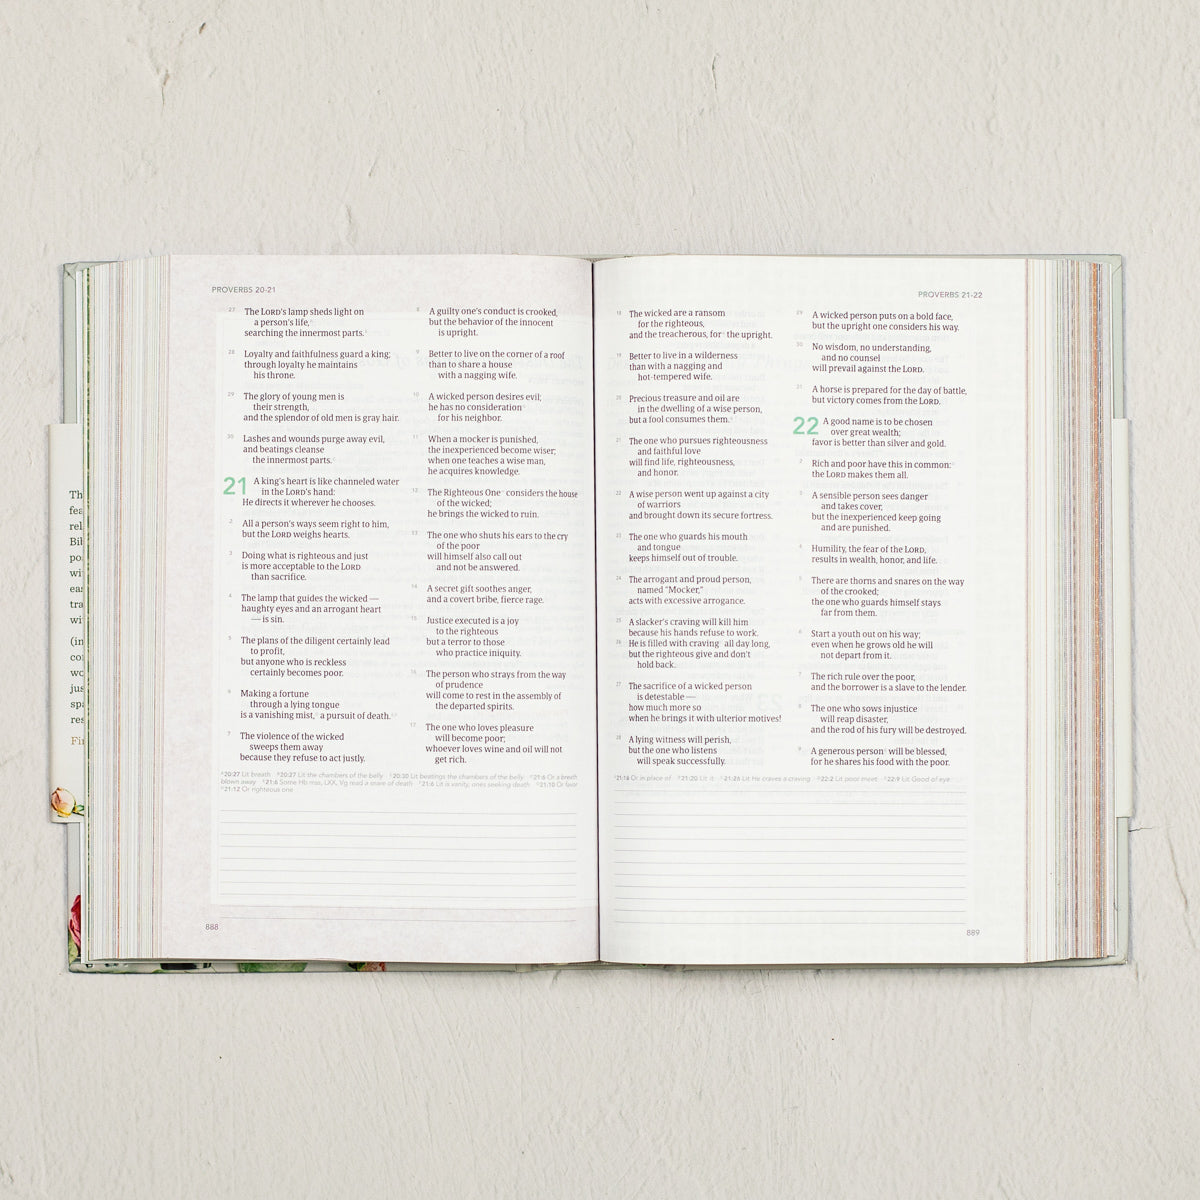 PROVERBS 20-21
27 The LORD's lamp sheds light on
a person's life,
searching the innermost parts.
28 Loyalty and faithfulness guard a king;
through loyalty he maintains
his throne.
29 The glory of young men is
their strength,
and the splendor of old men is gray hair.
30 Lashes and wounds purge away evil,
and beatings cleanse
the innermost parts.
21 A king's heart is like channeled water
in the LORD's hand:
He directs it wherever he chooses.
2 All a person's ways seem right to him,
but the LORD weighs hearts.
3 Doing what is righteous and just
is more acceptable to the LORD
than sacrifice.
4 The lamp that guides the wicked —
haughty eyes and an arrogant heart
— is sin.
5 The plans of the diligent certainly lead
to profit,
but anyone who is reckless
certainly becomes poor.
6 Making a fortune
through a lying tongue
is a vanishing mist, a pursuit of death.
7 The violence of the wicked
sweeps them away
because they refuse to act justly.
8 A guilty one's conduct is crooked,
but the behavior of the innocent
is upright.
9 Better to live on the corner of a roof
than to share a house
with a nagging wife.
10 A wicked person desires evil;
he has no consideration
for his neighbor.
11 When a mocker is punished,
the inexperienced become wiser;
when one teaches a wise man,
he acquires knowledge.
12 The Righteous One considers the house
of the wicked;
he brings the wicked to ruin.
13 The one who shuts his ears to the cry
of the poor
will himself also call out
and not be answered.
14 A secret gift soothes anger,
and a covert bribe, fierce rage.
15 Justice executed is a joy
to the righteous
but a terror to those
who practice iniquity.
16 The person who strays from the way
of prudence
will come to rest in the assembly of
the departed spirits.
17 The one who loves pleasure
will become poor;
whoever loves wine and oil will not
get rich.
20:27 Lit breath 20:27 Lit the chambers of the belly 20:30 Lit beatings the chambers of the belly 21:6 Or a breath
blown away 21:6 Some Hb mss, LXX, Vg read a snare of death 21:6 Lit is vanity, ones seeking death 21:10 Or favor
21:12 Or righteous one
888
PROVERBS 21-22
18 The wicked are a ransom
for the righteous,
and the treacherous, for the upright.
19 Better to live in a wilderness
than with a nagging and
hot-tempered wife.
20 Precious treasure and oil are
in the dwelling of a wise person,
but a fool consumes them.
21 The one who pursues righteousness
and faithful love
will find life, righteousness,
and honor.
22 A wise person went up against a city
of warriors
and brought down its secure fortress.
23 The one who guards his mouth
and tongue
keeps himself out of trouble.
24 The arrogant and proud person,
named “Mocker,”
acts with excessive arrogance.
25 A slacker's craving will kill him
because his hands refuse to work.
26 He is filled with craving all day long,
but the righteous give and don't
hold back.
27 The sacrifice of a wicked person
is detestable —
how much more so
when he brings it with ulterior motives!
28 A lying witness will perish,
but the one who listens
will speak successfully.
29 A wicked person puts on a bold face,
but the upright one considers his way.
30 No wisdom, no understanding,
and no counsel
will prevail against the LORD.
31 A horse is prepared for the day of battle,
but victory comes from the LORD.
22 A good name is to be chosen
over great wealth;
favor is better than silver and gold.
2 Rich and poor have this in common:
the LORD makes them all.
3 A sensible person sees danger
and takes cover,
but the inexperienced keep going
and are punished.
4 Humility, the fear of the LORD,
results in wealth, honor, and life.
5 There are thorns and snares on the way
of the crooked;
the one who guards himself stays
far from them.
6 Start a youth out on his way;
even when he grows old he will
not depart from it.
7 The rich rule over the poor,
and the borrower is a slave to the lender.
8 The one who sows injustice
will reap disaster,
and the rod of his fury will be destroyed.
9 A generous person will be blessed,
for he shares his food with the poor.
21:18 Or in place of 21:20 Lit it 21:26 Lit He craves a craving 22:2 Lit poor meet 22:9 Lit Good of eye
889